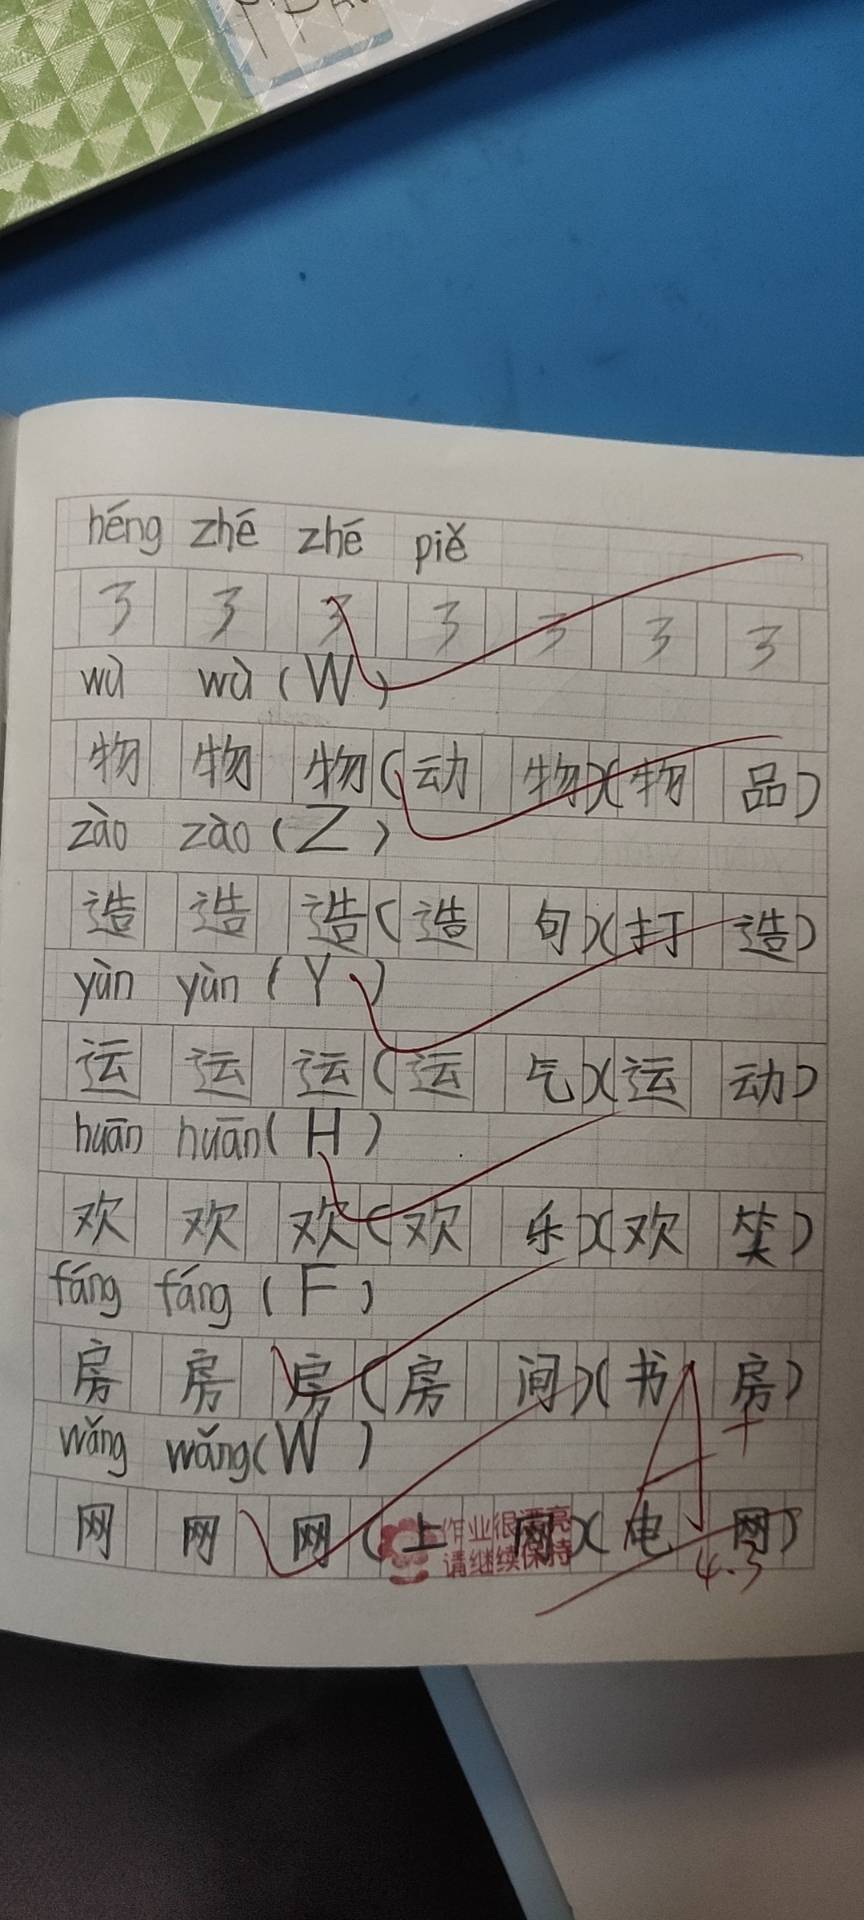 héng zhé zhé piě
㇋ ㇋ ㇋ ㇋ ㇋ ㇋ ㇋
wù wù (W)
物 物 物(动 物)(物 品)
zào zào (Z)
造 造 造(造 句)(打 造)
yùn yùn (Y)
运 运 运(运 气)(运 动)
huān huān(H)
欢 欢 欢(欢 乐)(欢 笑)
fáng fáng (F)
房 房 房(房 间)(书 房)
wǎng wǎng(W)
网 网 网(上 网)(电 网)
作业很漂亮
请继续保持
A+
4.3